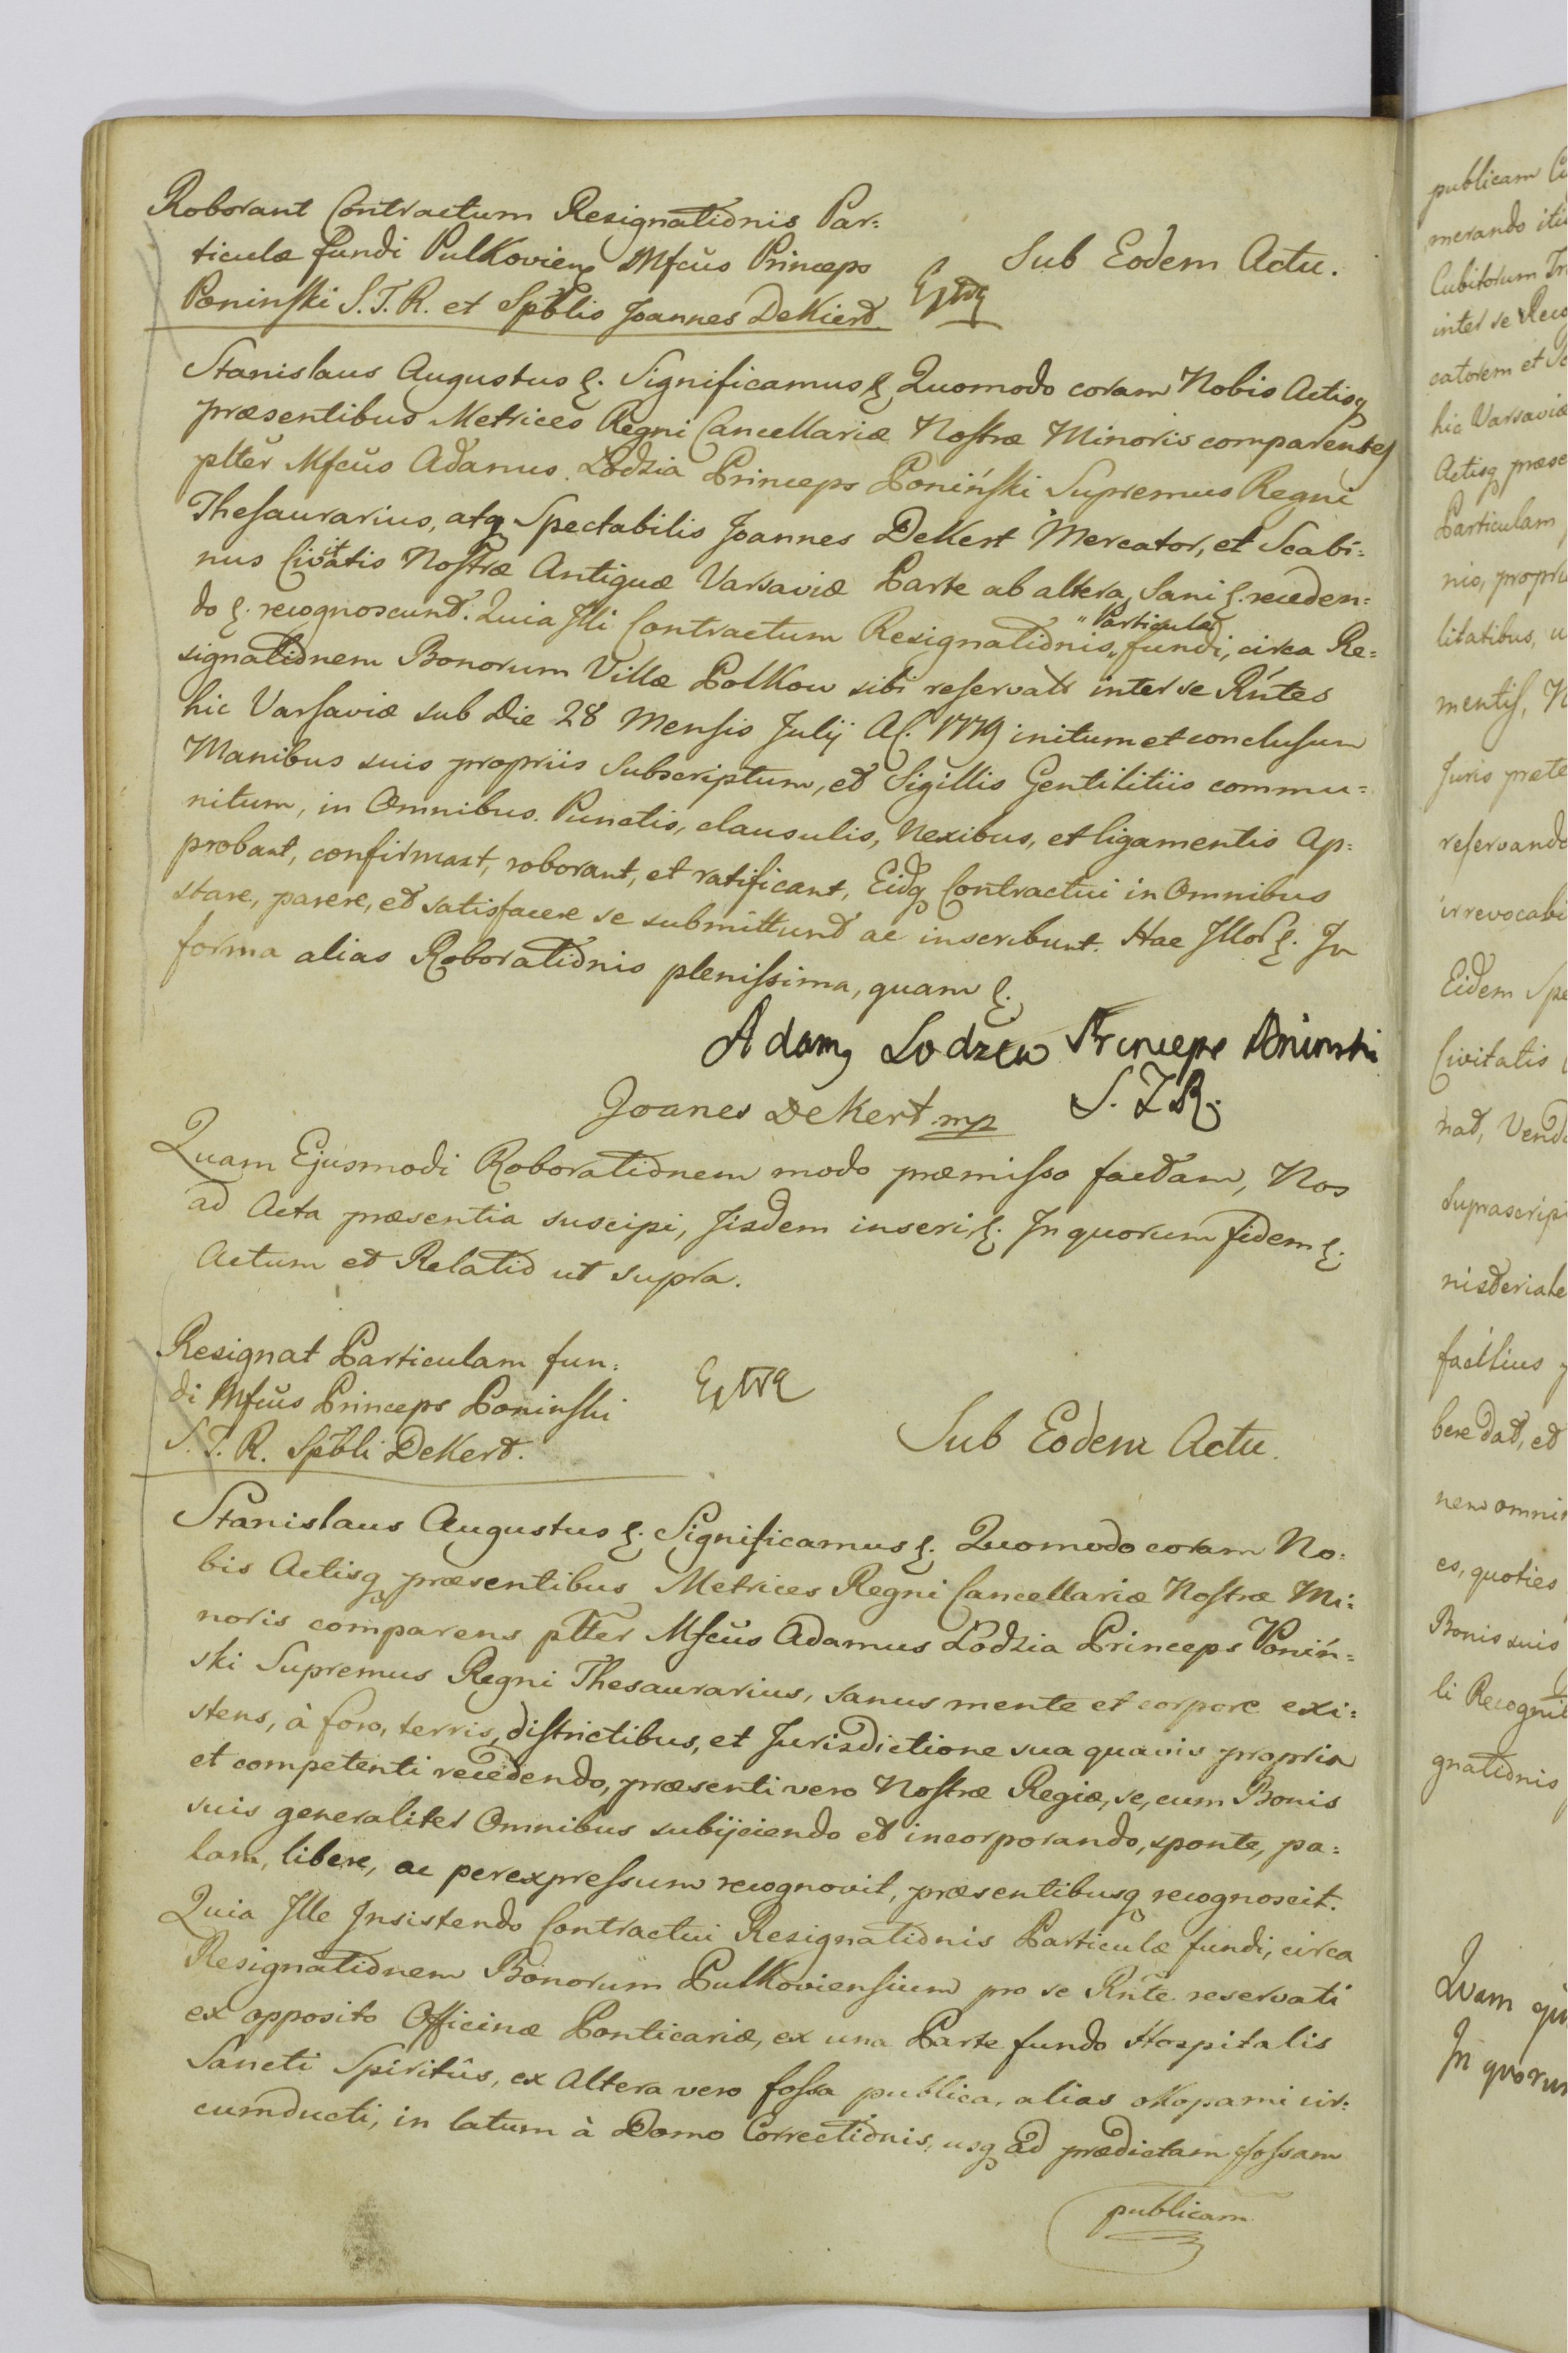 Roborant Contractum Resignationis Par:
ticulæ fundi Pulkovien̄ Mfcus Princeps
Poninski S. T. R. et Spblis Joannes Dekierd
Extra
Sub Eodem Actu.
Stanislaus Augustus &. Significamus & Quomodo coram Nobis Actisq
præsentibus Metrices Regni Cancellariæ Nostræ Minoris comparentes
plter Mfcus Adamus Lodzia Princeps Poniński Supremus Regni
Thesaurarius, atq Spectabilis Joannes Dekert Mercator, et Scabi:
nus Civitatis Nostræ Antiquæ Varsaviæ Parte ab altera, Sani &. receden:
do &. recognoscunt. Quia Jlli Contractum Resignationis Particulæ fundi, circa Re:
signationem Bonorum Villæ Polkow sibi reservati inter se Rntes
hic Varsaviæ sub Die 28 Mensis Julij A. 1779 initum et conclusum
Manibus suis propriis Subscriptum, et Sigillis Gentilitiis commu:
nitum, in Omnibus Punctis, clausulis, Nexibus, et ligamentis Ap:
probant, confirmant, roborant, et ratificant, Eidq Contractui in Omnibus
stare, parere, et satisfacere se submittunt ac inscribunt. Hac Jllor &. Jn
forma alias Roborationis plenissima, quam &.
Adamq Lodzia Princeps Poninski
S. T. R.
Joanes Dekert mp
Quam Ejusmodi Roborationem modo præmisso factam, Nos
ad Acta præsentia suscipi, Jisdem inseri &. Jn quorum fidem &.
Actum et Relatio ut supra.
Resignat Particulam fun:
di Mfcus Princeps Poninski
S. T. R. Spbli Dekert.
Extra
Sub Eodem Actu.
Stanislaus Augustus &. Significamus &. Quomodo coram No:
bis Actisq præsentibus Metrices Regni Cancellariæ Nostræ Mi:
noris comparens plter Mfcus Adamus Lodzia Princeps Poniń:
ski Supremus Regni Thesaurarius, sanus mente et corpore exi:
stens, à foro, terris, districtibus, et Jurisdictione sua quavis propria
et competenti recedendo, præsenti vero Nostræ Regiæ, se, cum Bonis
suis generaliter Omnibus subijciendo et incorporando, sponte, pa:
lam, libere, ac per expressum recognovit, præsentibusq recognoscit.
Quia Jlle Jnsistendo Contractui Resignationis Particulæ fundi, circa
Resignationem Bonorum Pulkoviensium pro se Rnte reservati
ex opposito Officinæ Ponticariæ, ex una Parte fundo Hospitalis
Sancti Spiritûs, ex Altera vero fossa publica, alias okopami cir:
cumducti, in latum à Domo Correctionis, usq ad prædictam fossam
publicam
publicam
merando
Cubitorum
inter se
catorem et
hic Varsaviæ
Actisq
Particulam
nis,
litatibus,
mentis,
Juris
Eidem
Civitatis
facilius
bere dat, et
es, quoties
Bonis suis
li
gnationis
Quam
Jn